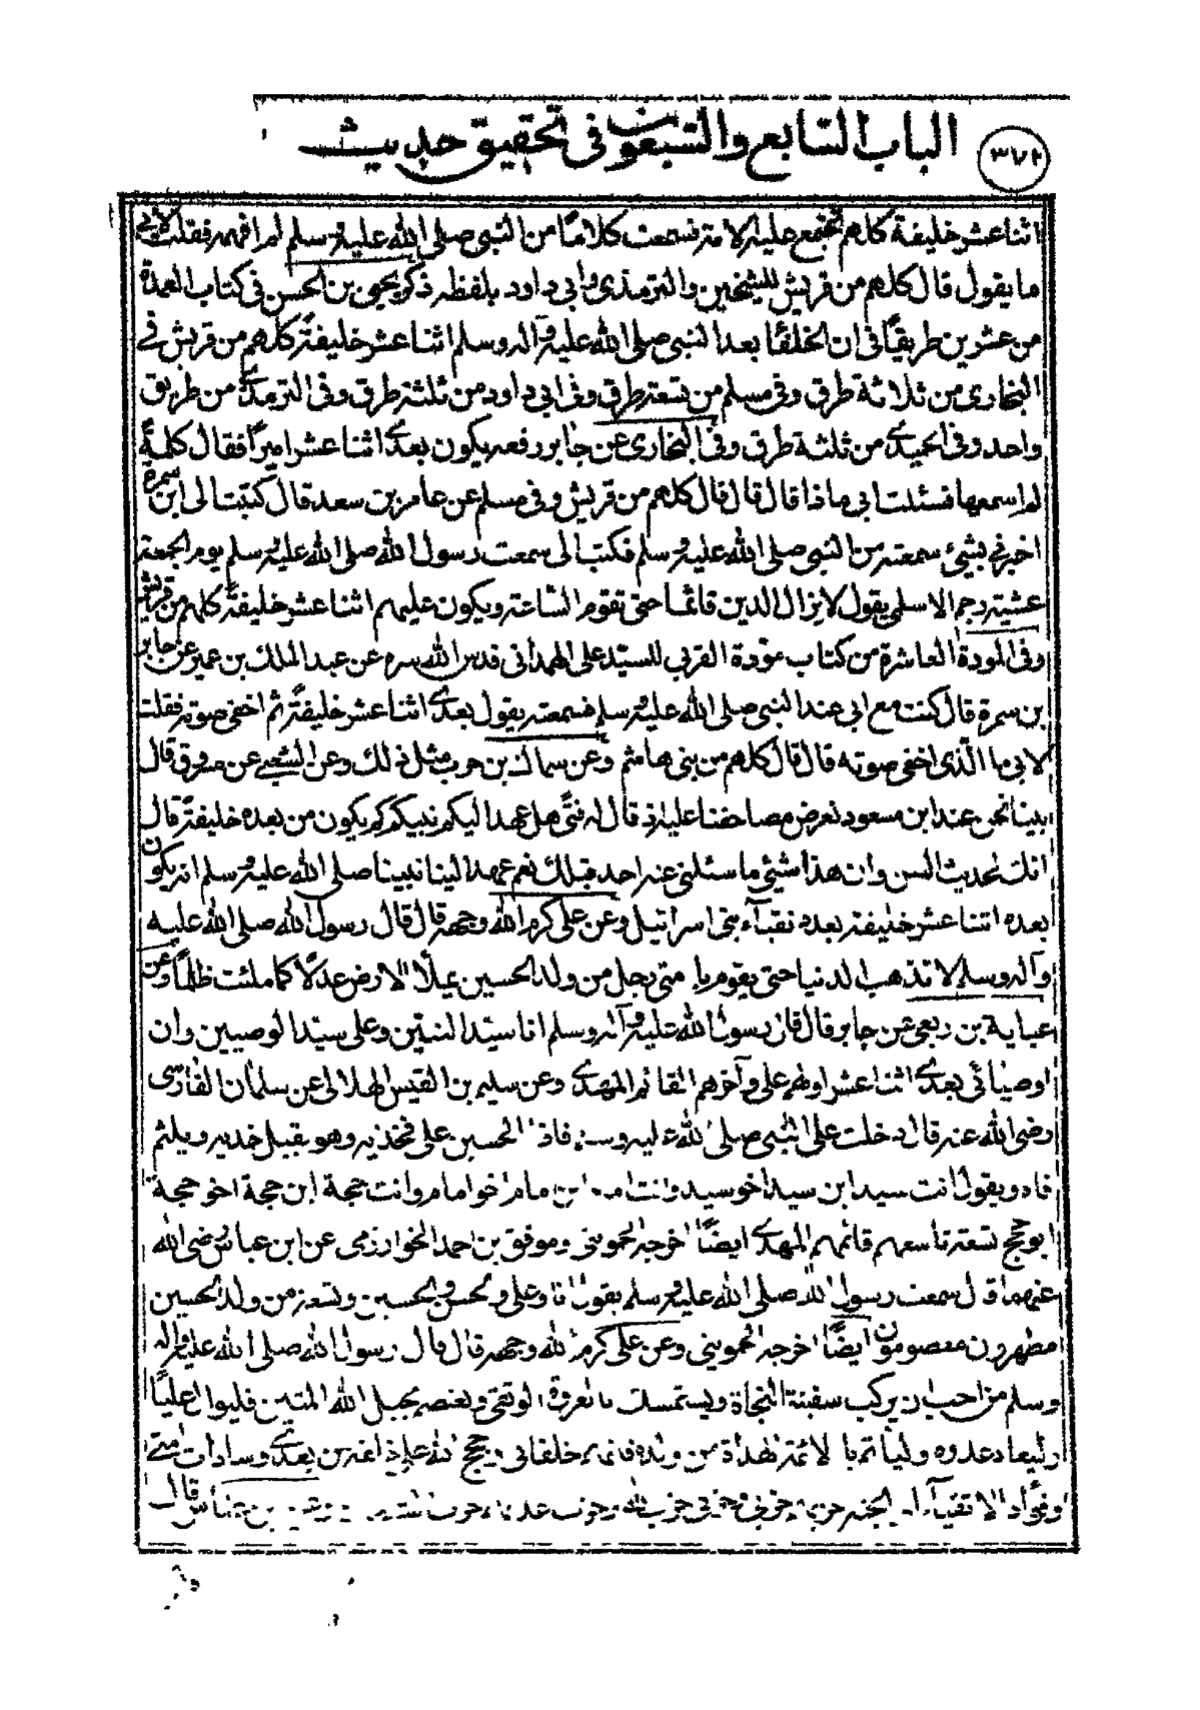 ٣٧٢ الباب السابع والسبعون فى تحقيق حديث
اثنا عشر خليفة كلهم تجتمع عليه الامة فسمعت كلاما من النبى صلى الله عليه وسلم لم افهمه فقلت لابى
ما يقول قال كلهم من قريش للشيخين والترمذى وابى داود بلفظه ذكر يحيى بن الحسن فى كتاب العمدة
من عشرين طريقا فى ان الخلفا بعد النبى صلى الله عليه وآله وسلم اثنا عشر خليفة كلهم من قريش فى
البخارى من ثلاثة طرق وفى مسلم من تسعة طرق وفى ابى داود من ثلثة طرق وفى الترمذى من طريق
واحد وفى الحميدى من ثلثة طرق وفى البخارى عن جابر رفعه يكون بعدى اثنا عشر اميرا فقال كلمة
لم اسمعها فسئلت ابى ماذا قال قال قال كلهم من قريش وفى مسلم عن عامر بن سعد قال كتبت الى ابن سمرة
اخبرنى بشيئ سمعته من النبى صلى الله عليه وسلم فكتب الى سمعت رسول الله صلى الله عليه وسلم يوم الجمعة
عشية رجم الاسلمى يقول لا يزال الدين قائما حتى تقوم الساعة ويكون عليهم اثنا عشر خليفة كلهم من قريش
وفى المودة العاشرة من كتاب مودة القربى للسيد على الهمدانى قدس الله سره عن عبد الملك بن عمير عن جابر
بن سمرة قال كنت مع ابى عند النبى صلى الله عليه وسلم فسمعته يقول بعدى اثنا عشر خليفة ثم اخفى صوته فقلت
لابى ما الذى اخفى صوته قال قال كلهم من بنى هاشم وعن سماك بن حرب مثل ذلك وعن الشعبى عن مسروق قال
بينا نحن عند ابن مسعود نعرض مصاحفنا عليه اذ قال له فتى هل عهد اليكم نبيكم كم يكون من بعده خليفة قال
انك لحديث السن وان هذا شيئ ما سئلنى عنه احد قبلك نعم عهد الينا نبينا صلى الله عليه وسلم انه يكون
بعده اثنا عشر خليفة بعدد نقباء بنى اسرائيل وعن على كرم الله وجهه قال قال رسول الله صلى الله عليه
وآله وسلم لا تذهب الدنيا حتى يقوم بامتى رجل من ولد الحسين يملأ الارض عدلا كما ملئت ظلما وعن
عباية بن ربعى عن جابر قال قال رسول الله عليه وآله وسلم انا سيد النبيين وعلى سيد الوصيين وان
اوصيائى بعدى اثنا عشر اولهم على وآخرهم القائم المهدى وعن سليم بن القيس الهلالى عن سلمان الفارسى
رضى الله عنه قال دخلت على النبى صلى الله عليه وسلم فاذا الحسين على فخذيه وهو يقبل خديه ويلثم
فاه ويقول انت سيد ابن سيد اخو سيد وانت امام ابن امام اخو امام وانت حجة ابن حجة اخو حجة
ابو حجج تسعة تاسعهم قائمهم المهدى ايضا اخرجه الحموينى وموفق بن احمد الخوارزمى عن ابن عباس رضى الله
عنهما قال سمعت رسول الله صلى الله عليه وسلم يقول انا وعلى والحسن والحسين وتسعة من ولد الحسين
مطهرون معصومون ايضا اخرجه الحموينى وعن على كرم الله وجهه قال قال رسول الله صلى الله عليه وآله
وسلم من احب ان يركب سفينة النجاة ويستمسك بالعروة الوثقى ويعتصم بحبل الله المتين فليوال عليا
وليعاد عدوه وليأتم بالائمة الهداة من ولده فانهم خلفائى وحجج الله على خلقه من بعدى وسادات امتى
وقواد الاتقياء الى الجنة حزبهم حزبى وحزبى حزب الله وحزب